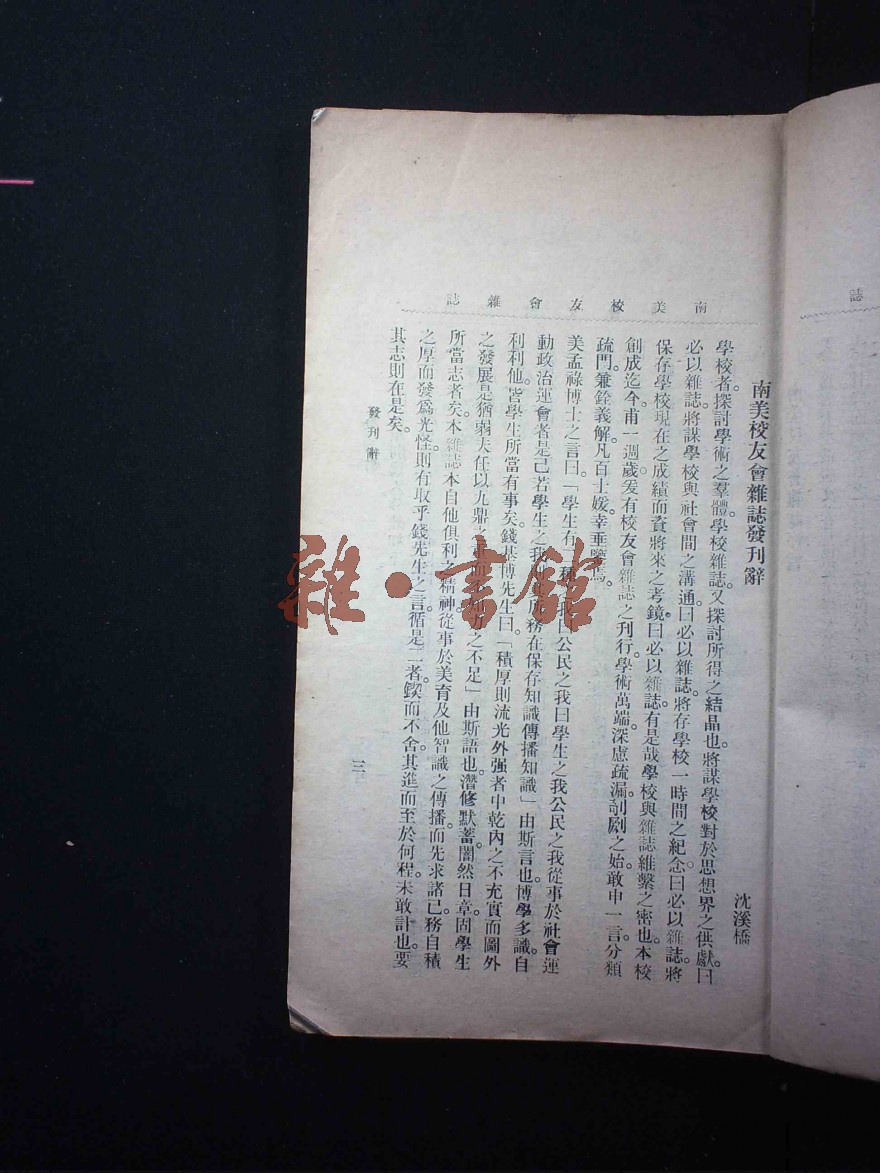 南美校友會雜誌
南美校友會雜誌發刊辭
沈溪橋
學校者。探討學術之羣體。學校雜誌。又探討所得之結晶也。將謀學校對於思想界之供獻。曰
必以雜誌。將謀學校與社會間之溝通。曰必以雜誌。將存學校一時間之紀念。曰必以雜誌。將
保存學校現在之成績而資將來之考鏡。曰必以雜誌。有是哉。學校與雜誌維繫之密也。本校
創成。迄今甫一週歲。爰有校友會雜誌之刊行。學術萬端。深慮疏漏。剞劂之始。敢申一言。分類
疏門。兼銓義解。凡百士媛。幸垂鑒焉。
美孟祿博士之言曰。「學生有二種我。曰公民之我。曰學生之我。公民之我。從事於社會運
動政治運會者是已。若學生之我。則其所務在保存知識傳播知識」由斯言也。博學多識。自
利利他。皆學生所當有事矣。錢基博先生曰。「積厚則流光。外强者中乾。內之不充實而圖外
之發展。是猶弱夫任以九鼎之重而不知力之不足」由斯語也。潛修默蓄。闇然日章。固學生
所當志者矣。本雜誌本自他俱利之精神。從事於美育及他智識之傳播。而先求諸己。務自積
之厚而發爲光怪。則有取乎錢先生之言。循是二者。鍥而不舍。其進而至於何程。未敢計也。要
其志則在是矣。
發刊辭
三
誌
雜·書館